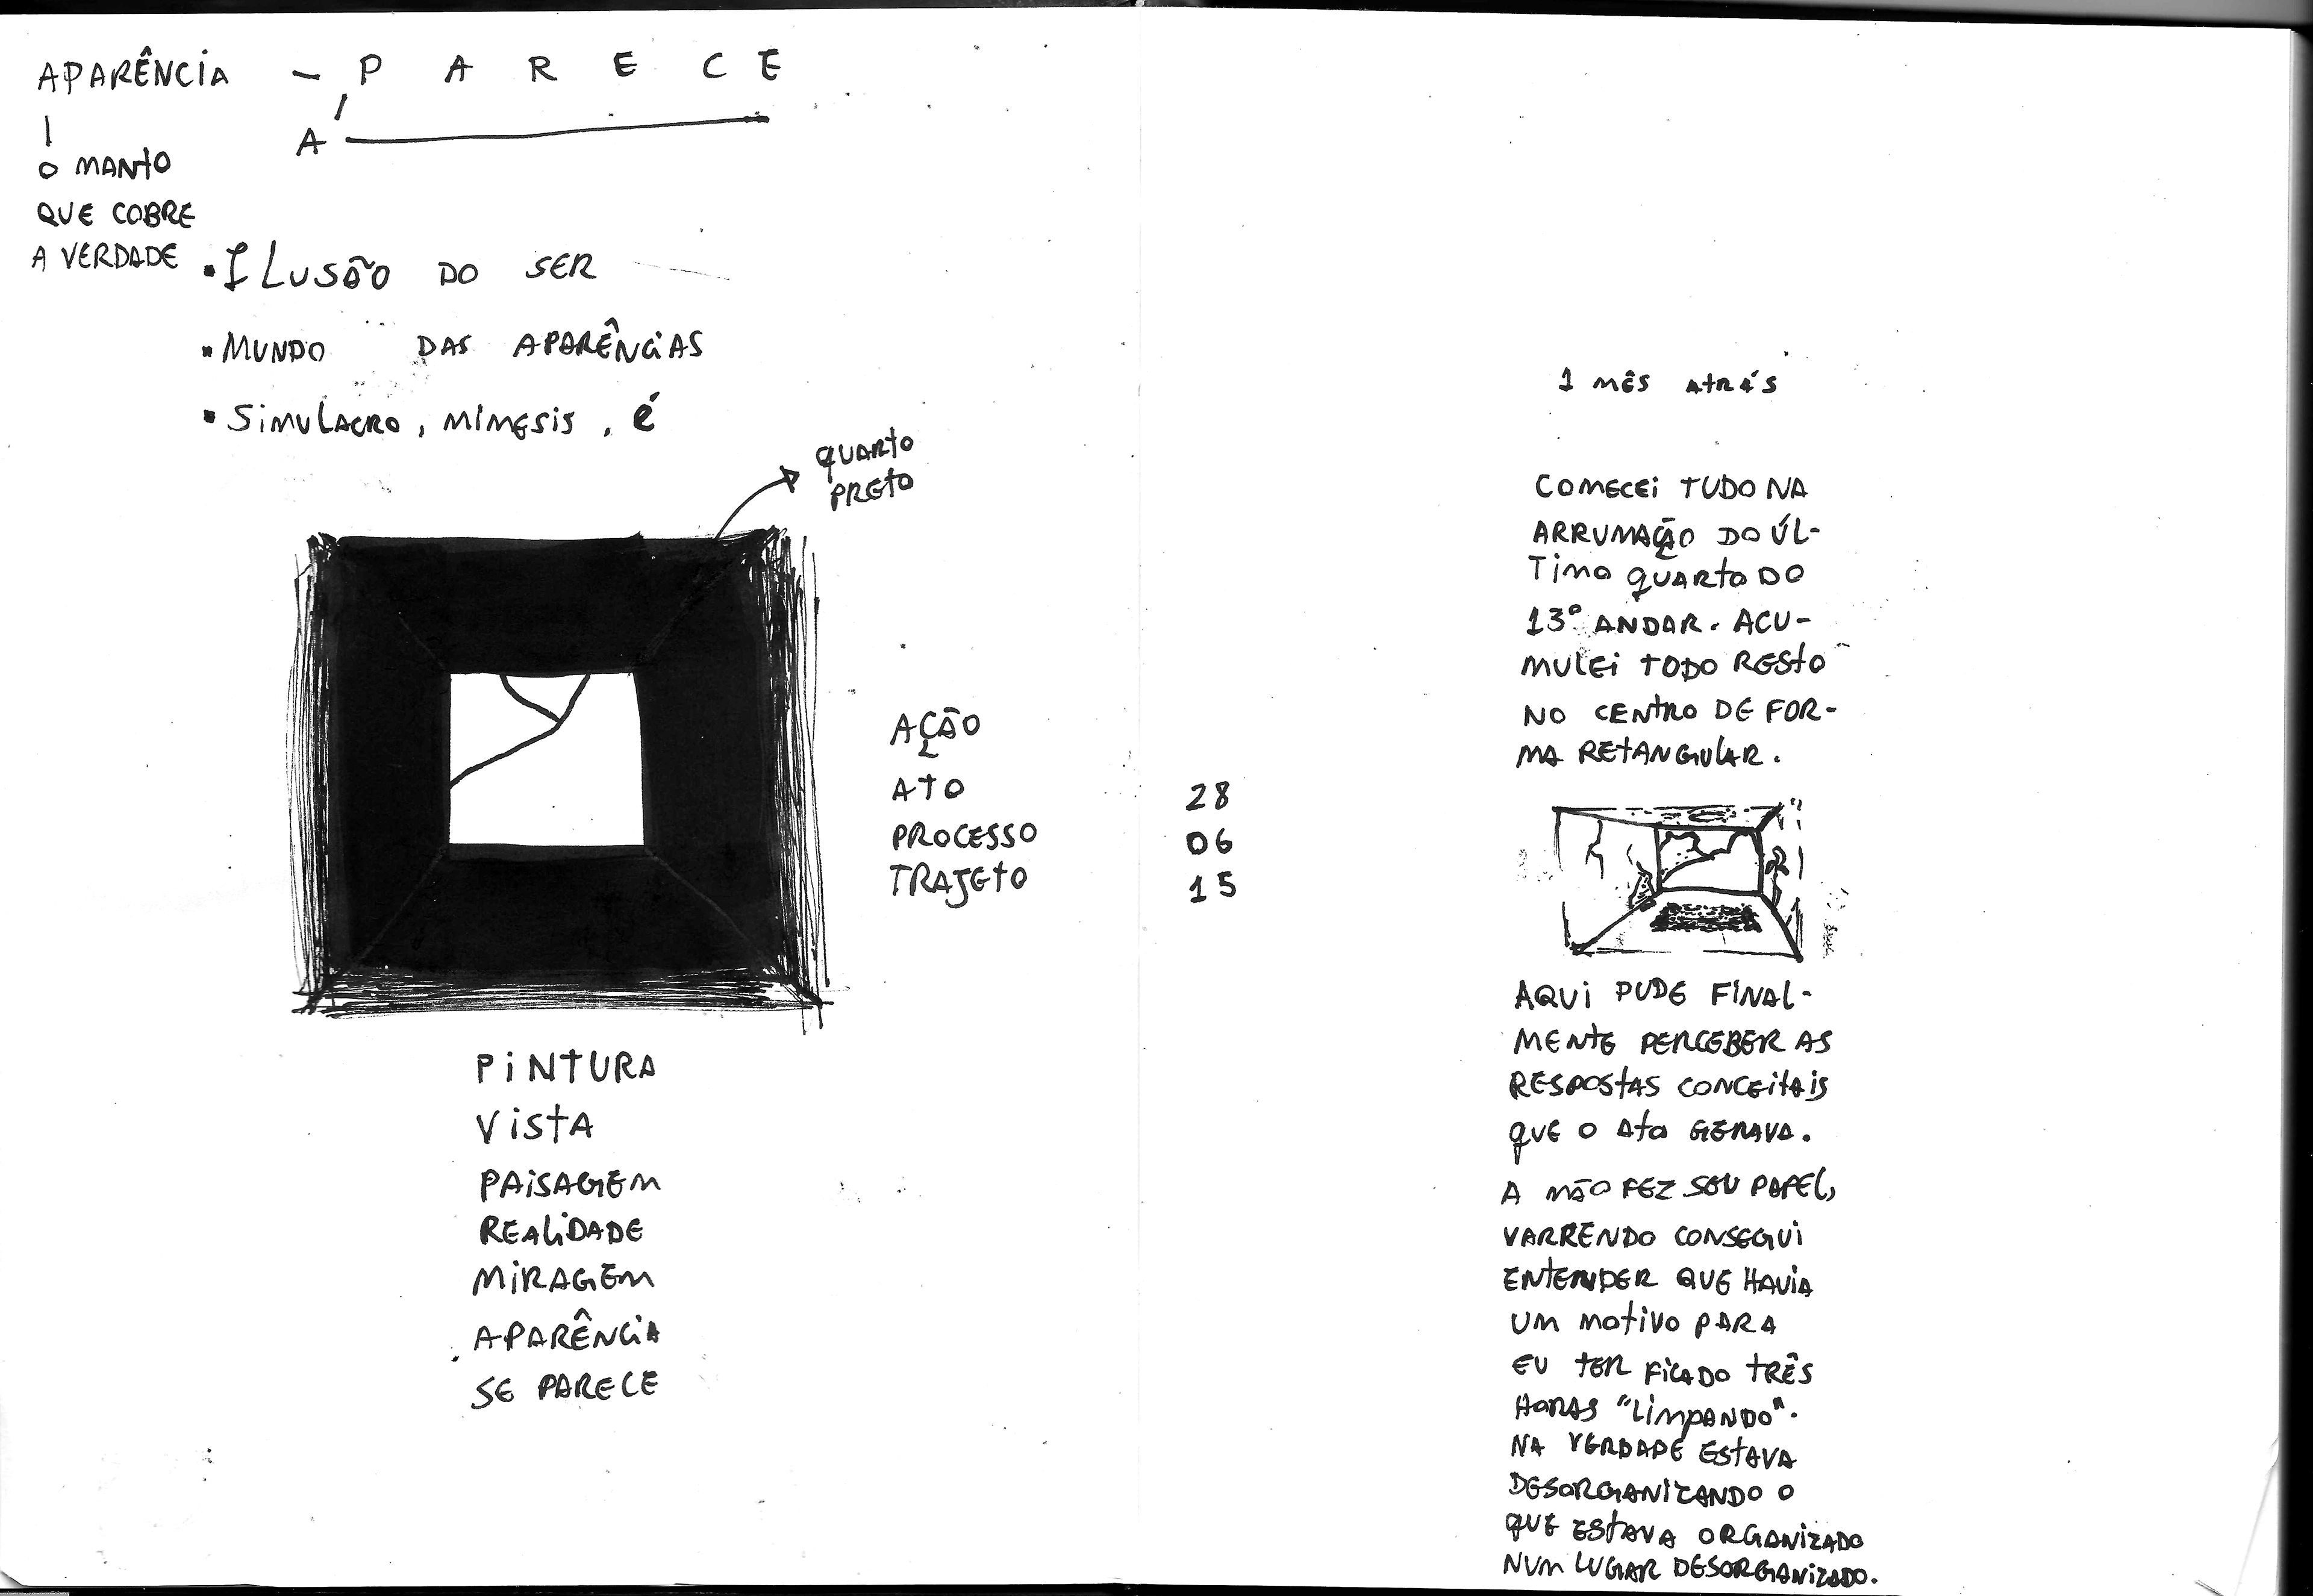 APARÊNCIA – P A R E C E
A
O MANTO
QUE COBRE
A VERDADE
• ILUSÃO DO SER
• MUNDO DAS APARÊNCIAS
• SIMULACRO, MÍMESIS, É
QUARTO
PRETO
AÇÃO
ATO
PROCESSO
TRAJETO
PINTURA
VISTA
PAISAGEM
REALIDADE
MIRAGEM
APARÊNCIA
SE PARECE
28
06
15
1 MÊS ATRÁS
COMECEI TUDO NA
ARRUMAÇÃO DO ÚL-
TIMO QUARTO DO
13º ANDAR. ACU-
MULEI TODO RESTO
NO CENTRO DE FOR-
MA RETANGULAR.
AQUI PUDE FINAL-
MENTE PERCEBER AS
RESPOSTAS CONCEITAIS
QUE O ATO GERAVA.
A MÃO FEZ SEU PAPEL,
VARRENDO CONSEGUI
ENTENDER QUE HAVIA
UM MOTIVO PARA
EU TER FICADO TRÊS
HORAS "LIMPANDO".
NA VERDADE ESTAVA
DESORGANIZANDO O
QUE ESTAVA ORGANIZADO
NUM LUGAR DESORGANIZADO.